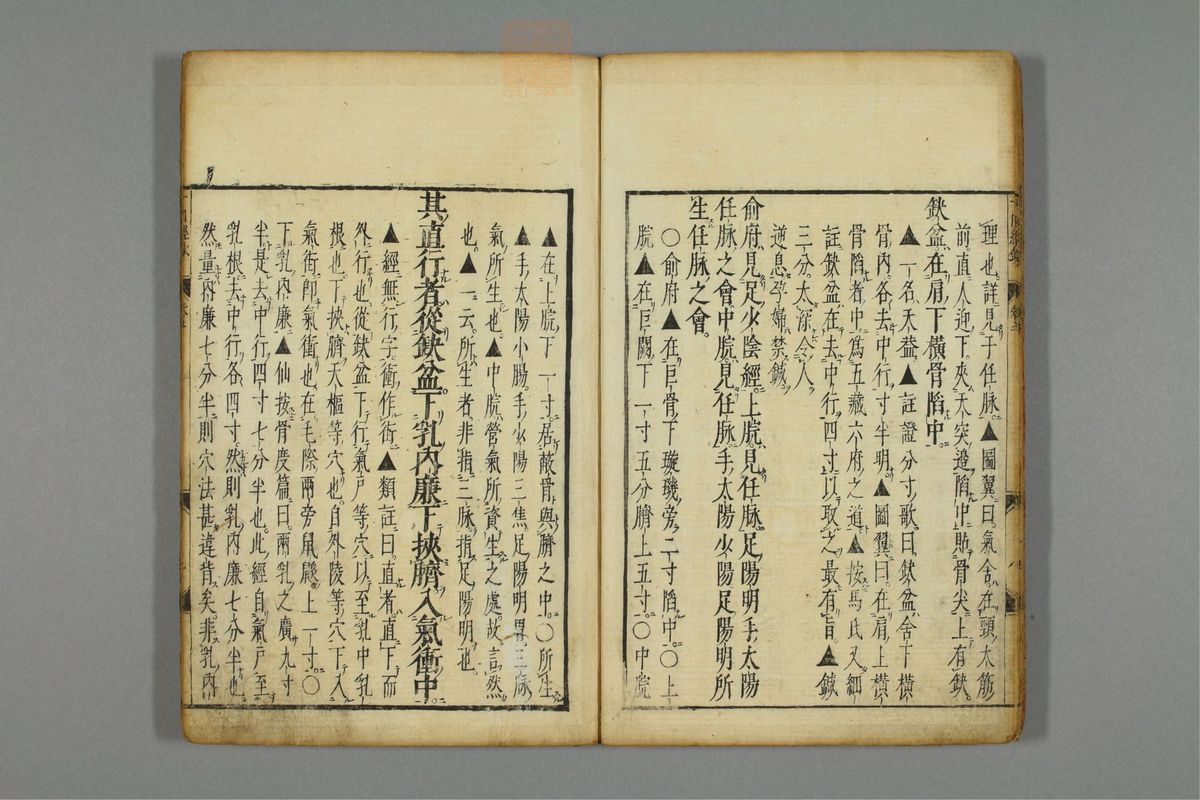 理也詳見于任脉▲圖翼曰氣舍在頸太筋
前直人迎下夾天突邉陷中貼骨尖上有缺
缺盆在肩下横骨陷中
▲一名天葢▲註證分寸歌曰缺盆舍下横
骨内各去中行寸半明▲圖翼曰在肩上横
骨陷者中爲五藏六府之道▲按馬氏又細
註缺盆在去中行四寸以取之最有旨▲鍼
三分太深令人
逆息孕婦禁鍼
俞府見足少陰經上脘見任脉足陽明手太陽
任脉之會中脘見任脉手太陽少陽足陽明所
生任脉之會
〇俞府▲在巨骨下璇璣旁二寸陷中〇上
脘▲在巨闕下一寸五分臍上五寸〇中脘
▲在上脘下一寸居蔽骨與臍之中〇所生
▲手太陽小腸手少陽三焦足陽明胃三脉
氣所生也▲中脘管氣所資生之處故言然
也▲一云所生者非指三脉指足陽明也
其直行者從缺盆下乳内廉下挾臍入氣衝中
▲經無行字衝作街▲類註曰直者直下而
外行也從缺盆下行氣户等穴以至乳中乳
根也下挾臍天樞等穴也自外陵等穴下入
氣街即氣衝也在毛際兩旁鼠鼷上一寸〇
下乳内廉▲仙按骨度篇曰兩乳之廣九寸
半是去中行四寸七分半也此經自氣户至
乳根去中行各四寸然則乳内廉七分半也
然量内廉七分半則穴法甚違背矣非乳内